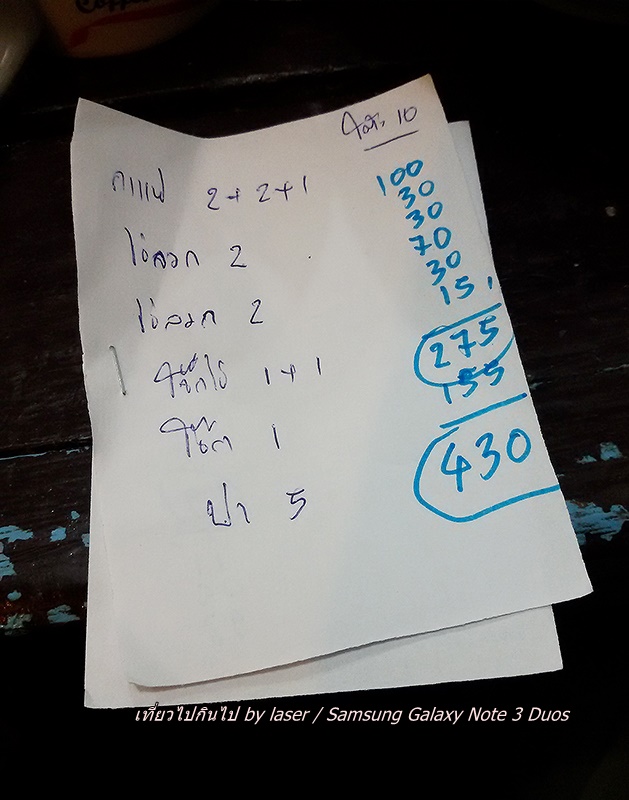 โต๊ะ 10
กาแฟ 2+2+1
100
30
ไข่ลวก 2
30
70
ไข่ลวก 2
30
15
โจ๊กไข่ 1+1
275
155
โจ๊ก 1
430
ปา 5
เที่ยวไปกินไป by laser / Samsung Galaxy Note 3 Duos